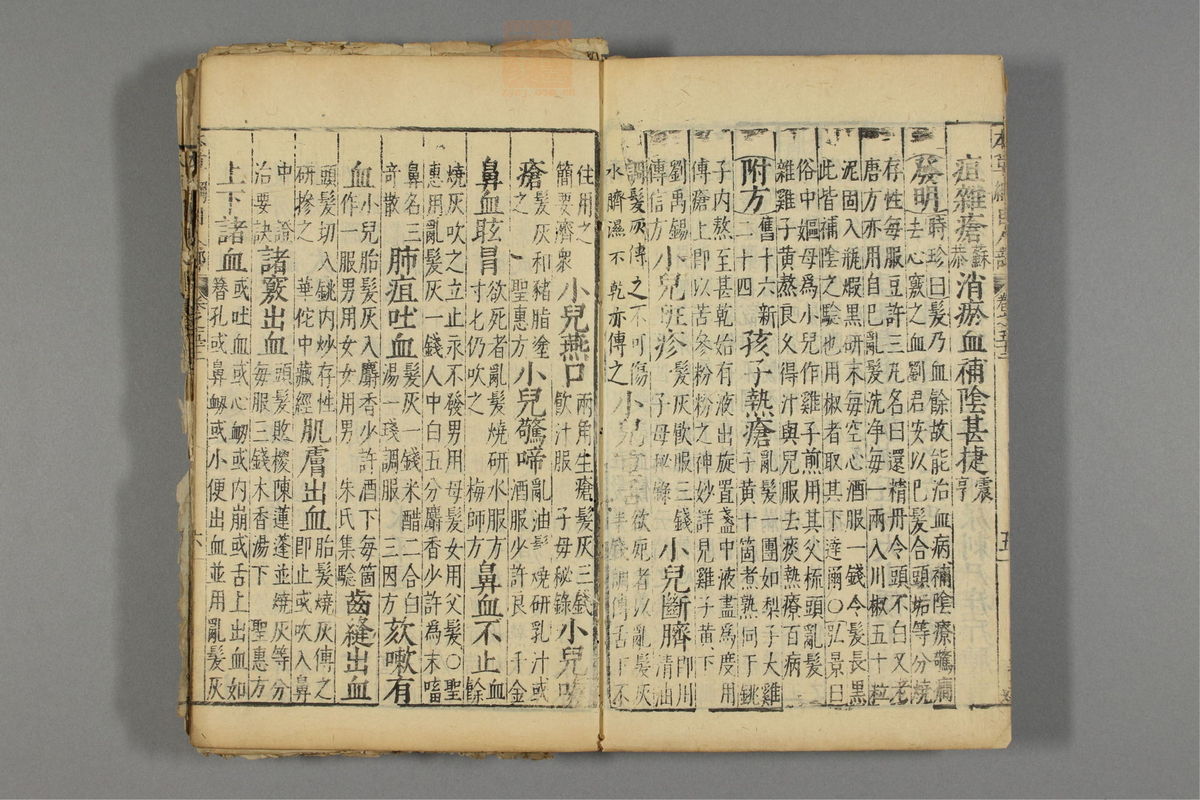 疽雜瘡蘇恭消瘀血補陰甚捷震亨
發明時珍曰髮乃血餘故能治血病補陰療驚癇
去心竅之血劉君安以己髮合頭垢等分燒
存性每服豆許三丸名曰還精丹令頭不白又老
唐方亦用自己亂髮洗净每一兩入川椒五十粒
泥固入瓶煆黑研末每空心酒服一錢令髮長黑
此皆補陰之驗也用椒者取其下達爾○弘景曰
俗中嫗母為小兒作雞子煎用其父梳頭亂髮
雜雞子黄熬良久得汁與兒服去痰熱療百病
附方舊十六新二十四孩子熱瘡亂髮一團如梨子大雞子黄十箇煮熟同于銚
子内熬至甚乾始有液出旋置盞中液盡為度用
傅瘡上即以苦參粉粉之神妙詳見雞子黄下
劉禹錫傳信方小兒斑疹髮灰飲服三錢子母秘錄小兒斷臍即用清油
調髮灰傅之不可傷水臍濕不乾亦傅之小兒欲死者以亂髮灰半錢調傅舌下不
住用之簡要濟衆小兒燕口兩角生瘡髮灰三錢飲汁服子母秘錄小兒
瘡髮灰和猪脂塗之聖惠方小兒驚啼亂油髮燒研乳汁或酒服少許良千金
鼻血眩冒欲死者亂髮燒研水服方寸匕仍吹之梅師方鼻血不止血餘
燒灰吹之立止永不發男用母髮女用父髮○聖
惠用亂髮灰一錢人中白五分麝香少許為末㗜
鼻名三奇散肺疽吐血髮灰一錢米醋二合白湯一琖調服三因方欬嗽有
血小兒胎髮灰入麝香少許酒下每箇作一服男用女女用男朱氏集驗齒縫出血
頭髮切入銚内炒存性研摻之華佗中藏經肌膚出血胎髮燒灰傅之即止或吹入鼻
中證治要訣諸竅出血頭髮敗椶陳蓮蓬並燒灰等分每服三錢木香湯下聖惠方
上下諸血或吐血或心衄或内崩或舌上出血如簪孔或鼻衄或小便出血並用亂髮灰